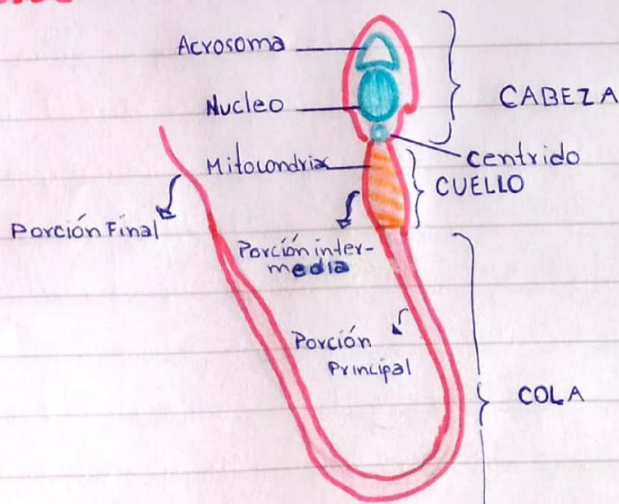 Acrosoma
Nucleo
CABEZA
Mitocondria
centrido
CUELLO
Porción Final
Porción inter-
media
Porción
Principal
COLA